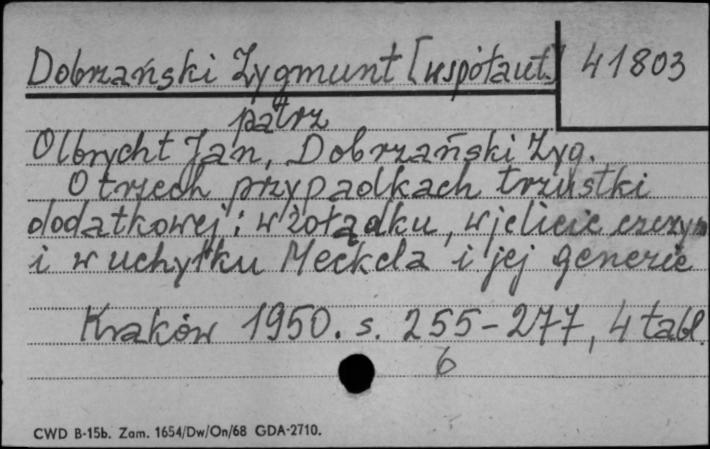 Dobrzański Zygmunt [współaut.] 41803
patrz
Olbrycht Jan, Dobrzański Zyg.
O trzech przypadkach trzustki
dodatkowej: w żołądku, w jelicie czczym
i w uchyłku Meckela i jej genezie
Kraków 1950. s. 255-277, 4 tabl.
6
CWD B-15b. Zam. 1654/Dw/On/68 GDA-2710.